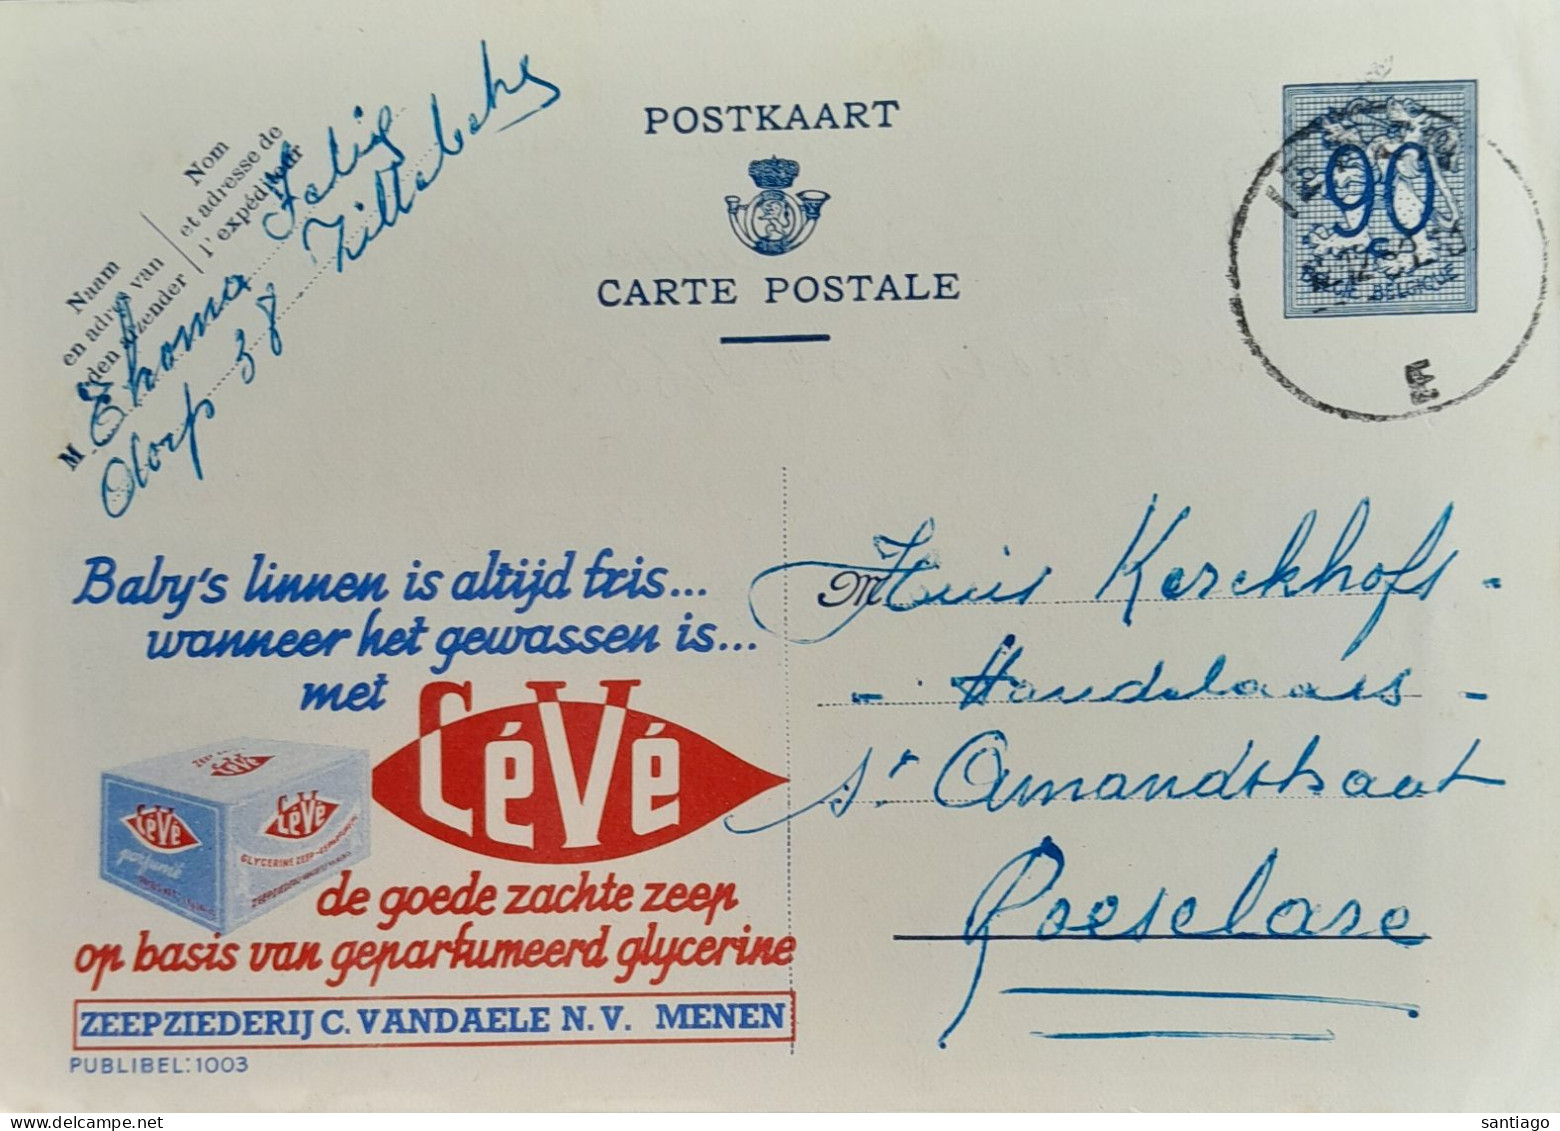 POSTKAART
CARTE POSTALE
Naam
en adres van
den afzender
Nom
et adresse de
l' expéditeur
M
Thoma Felix
dorp 38 Zillebeke
90
BELGIQUE
E
M Huis Kerckhofs -
- Handelaars -
St Amandstraat
Roeselare
Baby's linnen is altijd fris...
wanneer het gewassen is...
met CéVé
CéVé
parfumé
CéVé
GLYCERINE ZEEP
de goede zachte zeep
op basis van geparfumeerd glycerine
ZEEPZIEDERIJ C. VANDAELE N. V. MENEN
PUBLIBEL: 1003
santiago